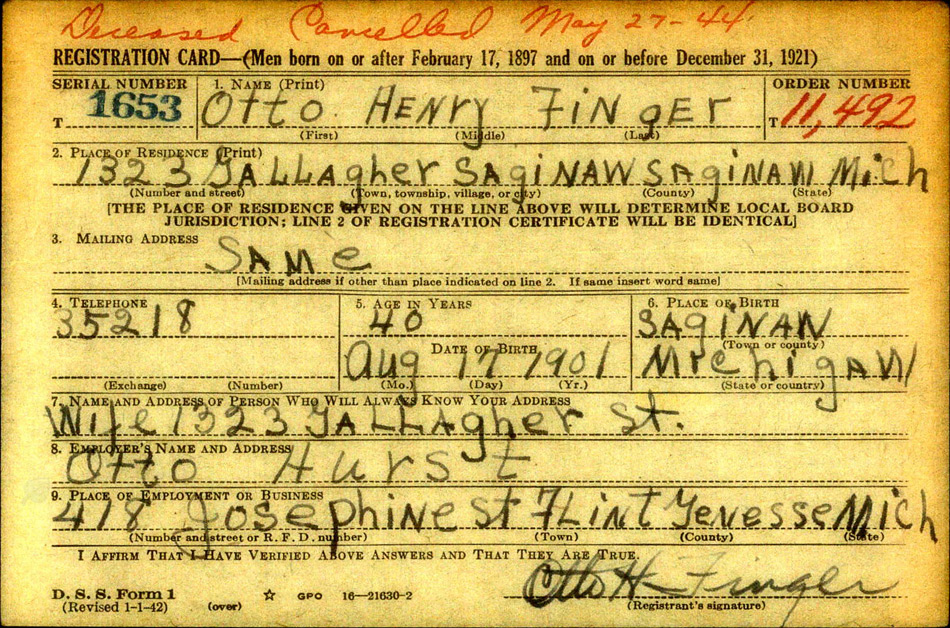 Deceased Cancelled May 27-44
REGISTRATION CARD—(Men born on or after February 17, 1897 and on or before December 31, 1921)
SERIAL NUMBER 1. NAME (Print) ORDER NUMBER
T 1653 Otto HENRy FiNgEr T 11,492
(First) (Middle) (Last)
2. PLACE OF RESIDENCE (Print)
1323 GALLAgher SAgiNAW SAgiNAW Mich
(Number and street) (Town, township, village, or city) (County) (State)
[THE PLACE OF RESIDENCE GIVEN ON THE LINE ABOVE WILL DETERMINE LOCAL BOARD
JURISDICTION; LINE 2 OF REGISTRATION CERTIFICATE WILL BE IDENTICAL]
3. MAILING ADDRESS
SAMe
[Mailing address if other than place indicated on line 2. If same insert word same]
4. TELEPHONE 5. AGE IN YEARS 6. PLACE OF BIRTH
35218 40 SAgiNAW
DATE OF BIRTH (Town or county)
Aug 17 1901 MichigAN
(Exchange) (Number) (Mo.) (Day) (Yr.) (State or country)
7. NAME AND ADDRESS OF PERSON WHO WILL ALWAYS KNOW YOUR ADDRESS
Wife 1323 GALLAgher St.
8. EMPLOYER'S NAME AND ADDRESS
Otto Hurst
9. PLACE OF EMPLOYMENT OR BUSINESS
418 Josephine St FLint Genesse Mich
(Number and street or R. F. D. number) (Town) (County) (State)
I AFFIRM THAT I HAVE VERIFIED ABOVE ANSWERS AND THAT THEY ARE TRUE.
Otto H Finger
D. S. S. Form 1
(Revised 1-1-42) (over) ☆ GPO 16—21630-2 (Registrant's signature)